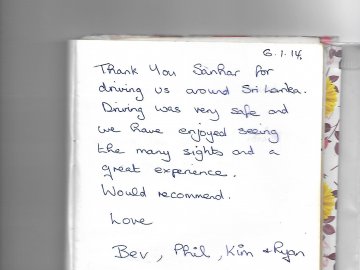 6.1.14.
Thank You Sankar for
driving us around Sri Lanka.
Driving was very safe and
we have enjoyed seeing
the many sights and a
great experience.
Would recommend.
Love
Bev, Phil, Kim & Ryan